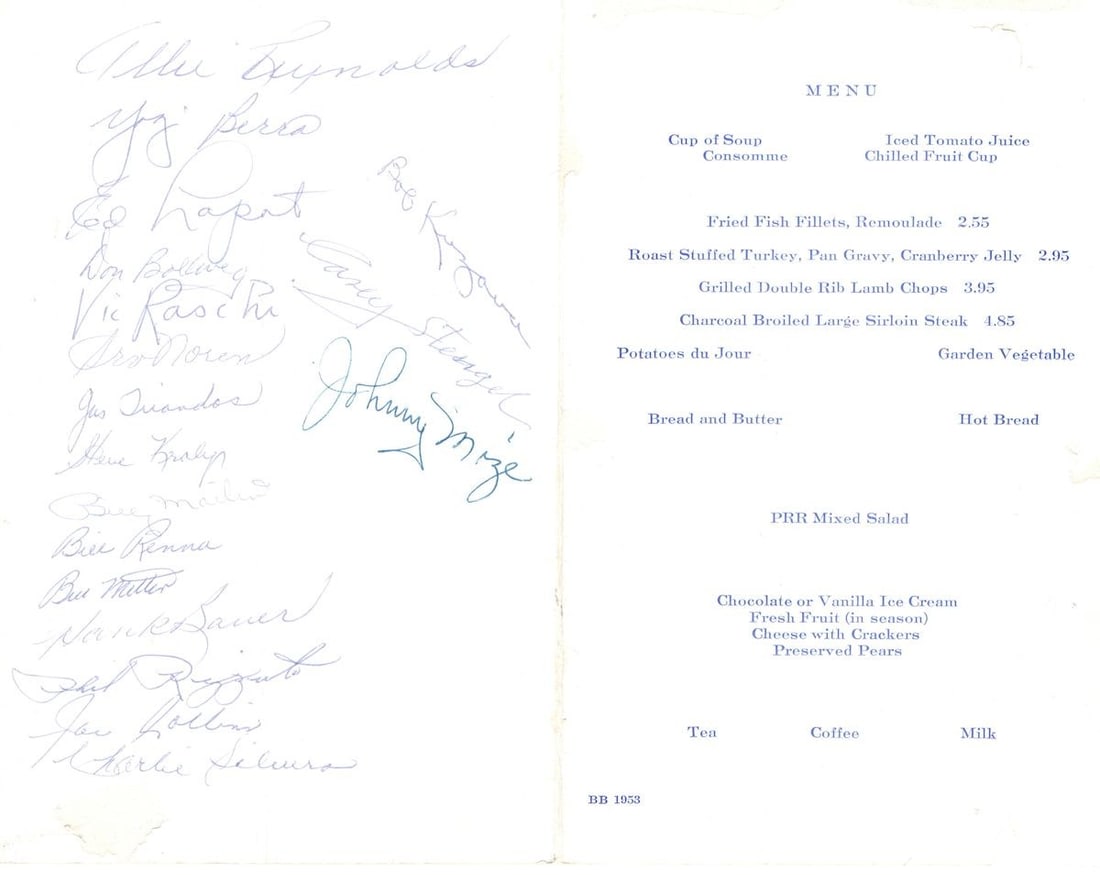 Allie Reynolds
Yogi Berra
Ed Lopat
Don Bollweg
Vic Raschi
Irv Noren
Gus Triandos
Steve Kraly
Bill
Bill Renna
Bill Miller
Hank Bauer
Phil Rizzuto
Joe Collins
Charlie Silvera
Bob Kuzava
Casey Stengel
Johnny Mize
MENU
Cup of Soup Iced Tomato Juice
Consomme Chilled Fruit Cup
Fried Fish Fillets, Remoulade 2.55
Roast Stuffed Turkey, Pan Gravy, Cranberry Jelly 2.95
Grilled Double Rib Lamb Chops 3.95
Charcoal Broiled Large Sirloin Steak 4.85
Potatoes du Jour Garden Vegetable
Bread and Butter Hot Bread
PRR Mixed Salad
Chocolate or Vanilla Ice Cream
Fresh Fruit (in season)
Cheese with Crackers
Preserved Pears
Tea Coffee Milk
BB 1953